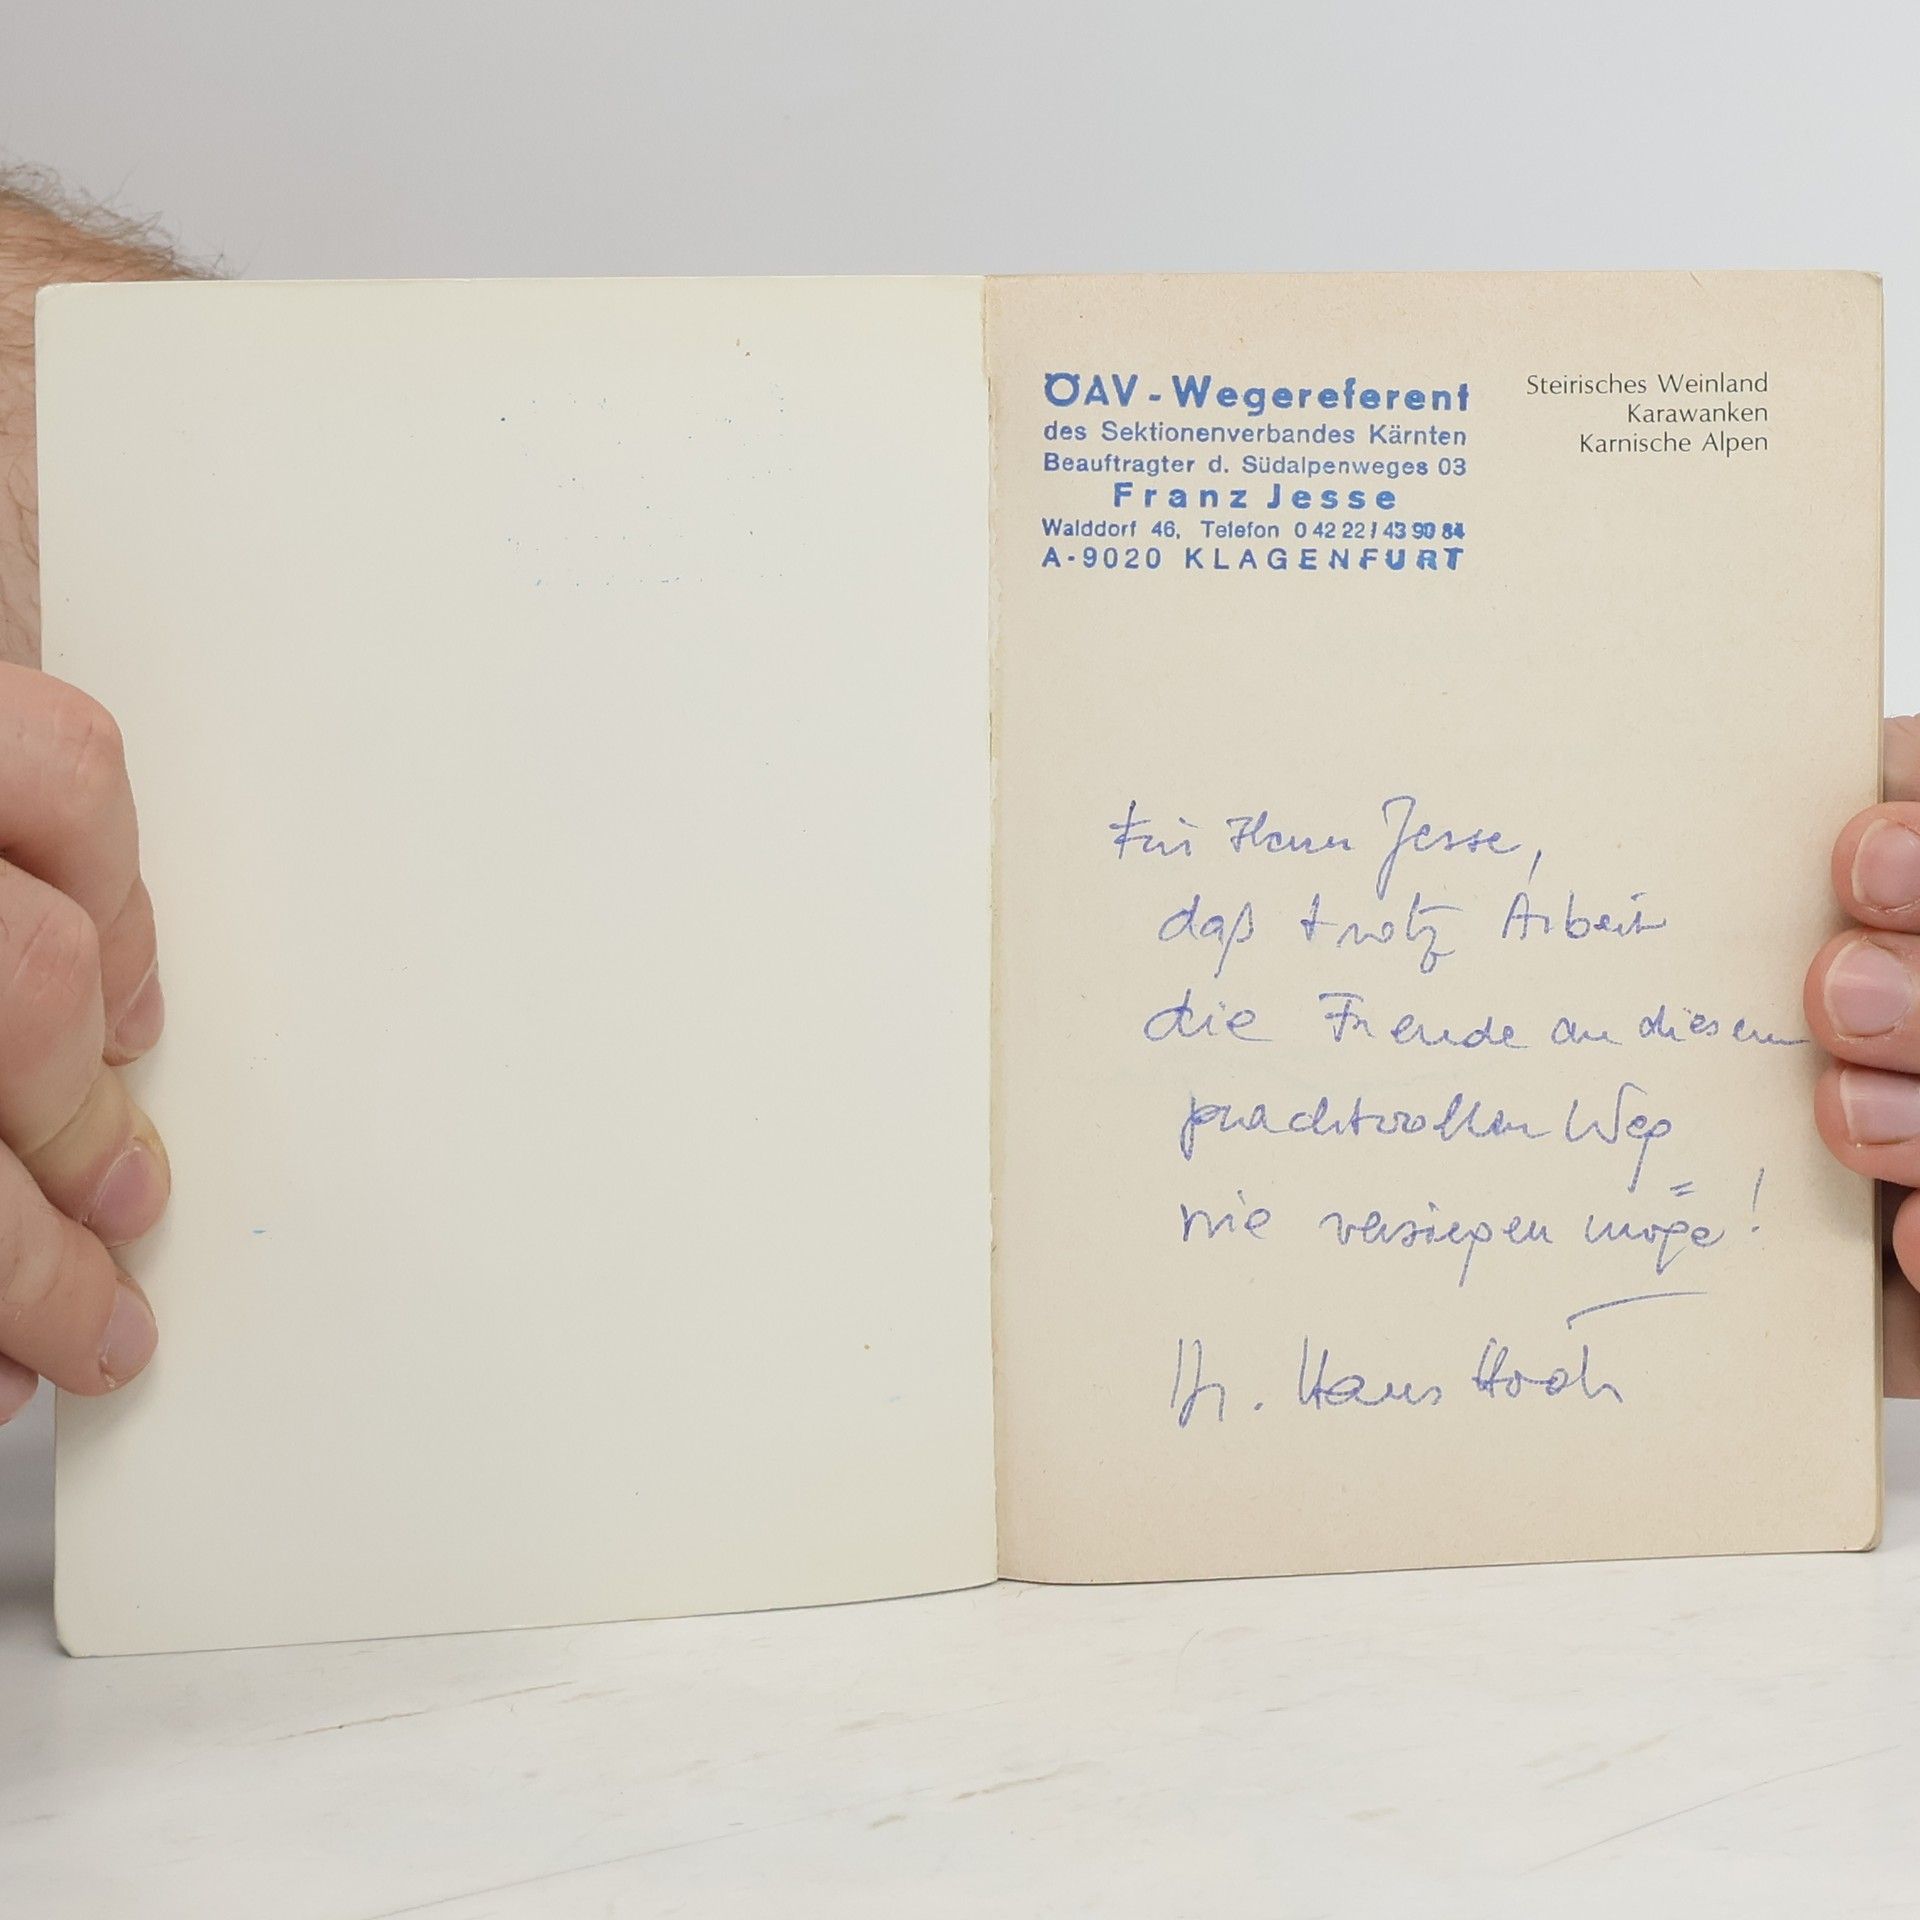 ÖAV-Wegereferent
des Sektionenverbandes Kärnten
Beauftragter d. Südalpenweges 03
Franz Jesse
Walddorf 46, Telefon 0 42 22 / 43 90 84
A-9020 KLAGENFURT
Steirisches Weinland
Karawanken
Karnische Alpen
Für Herrn Jesse,
daß trotz Arbeit
die Freude an diesem
prachtvollen Weg
nie versiegen möge!
Dr. Hans